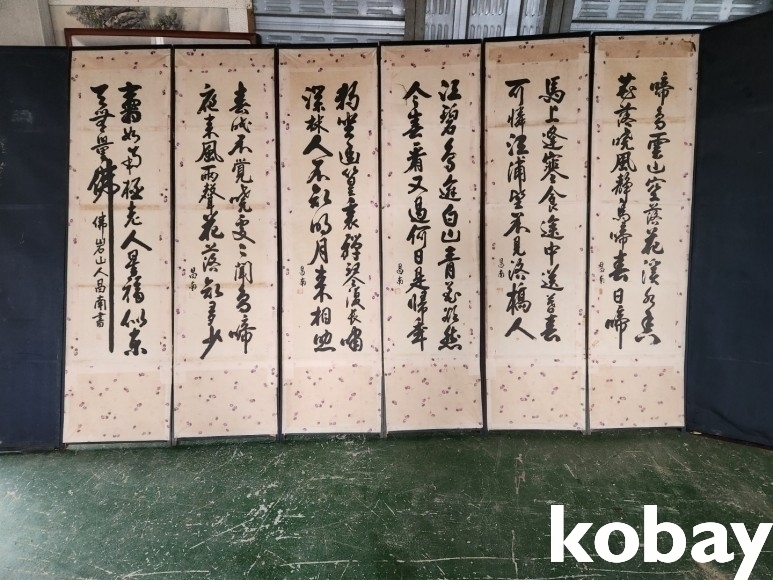 啼鳥雲山空落花溪水香
花落曉風靜鳥啼春日
昌南
馬上逢寒食途中送暮春
可憐江浦望不見洛橋人
昌南
江碧鳥逾白山青花欲然
今春看又過何日是歸年
昌南
獨坐幽篁裏彈琴復長嘯
深林人不知明月來相照
昌南
春眠不覺曉處〻聞鳥啼
夜來風雨聲花落知多少
昌南
壽如南極老人星福似東
天無量佛
佛岩山人昌南書
kobay